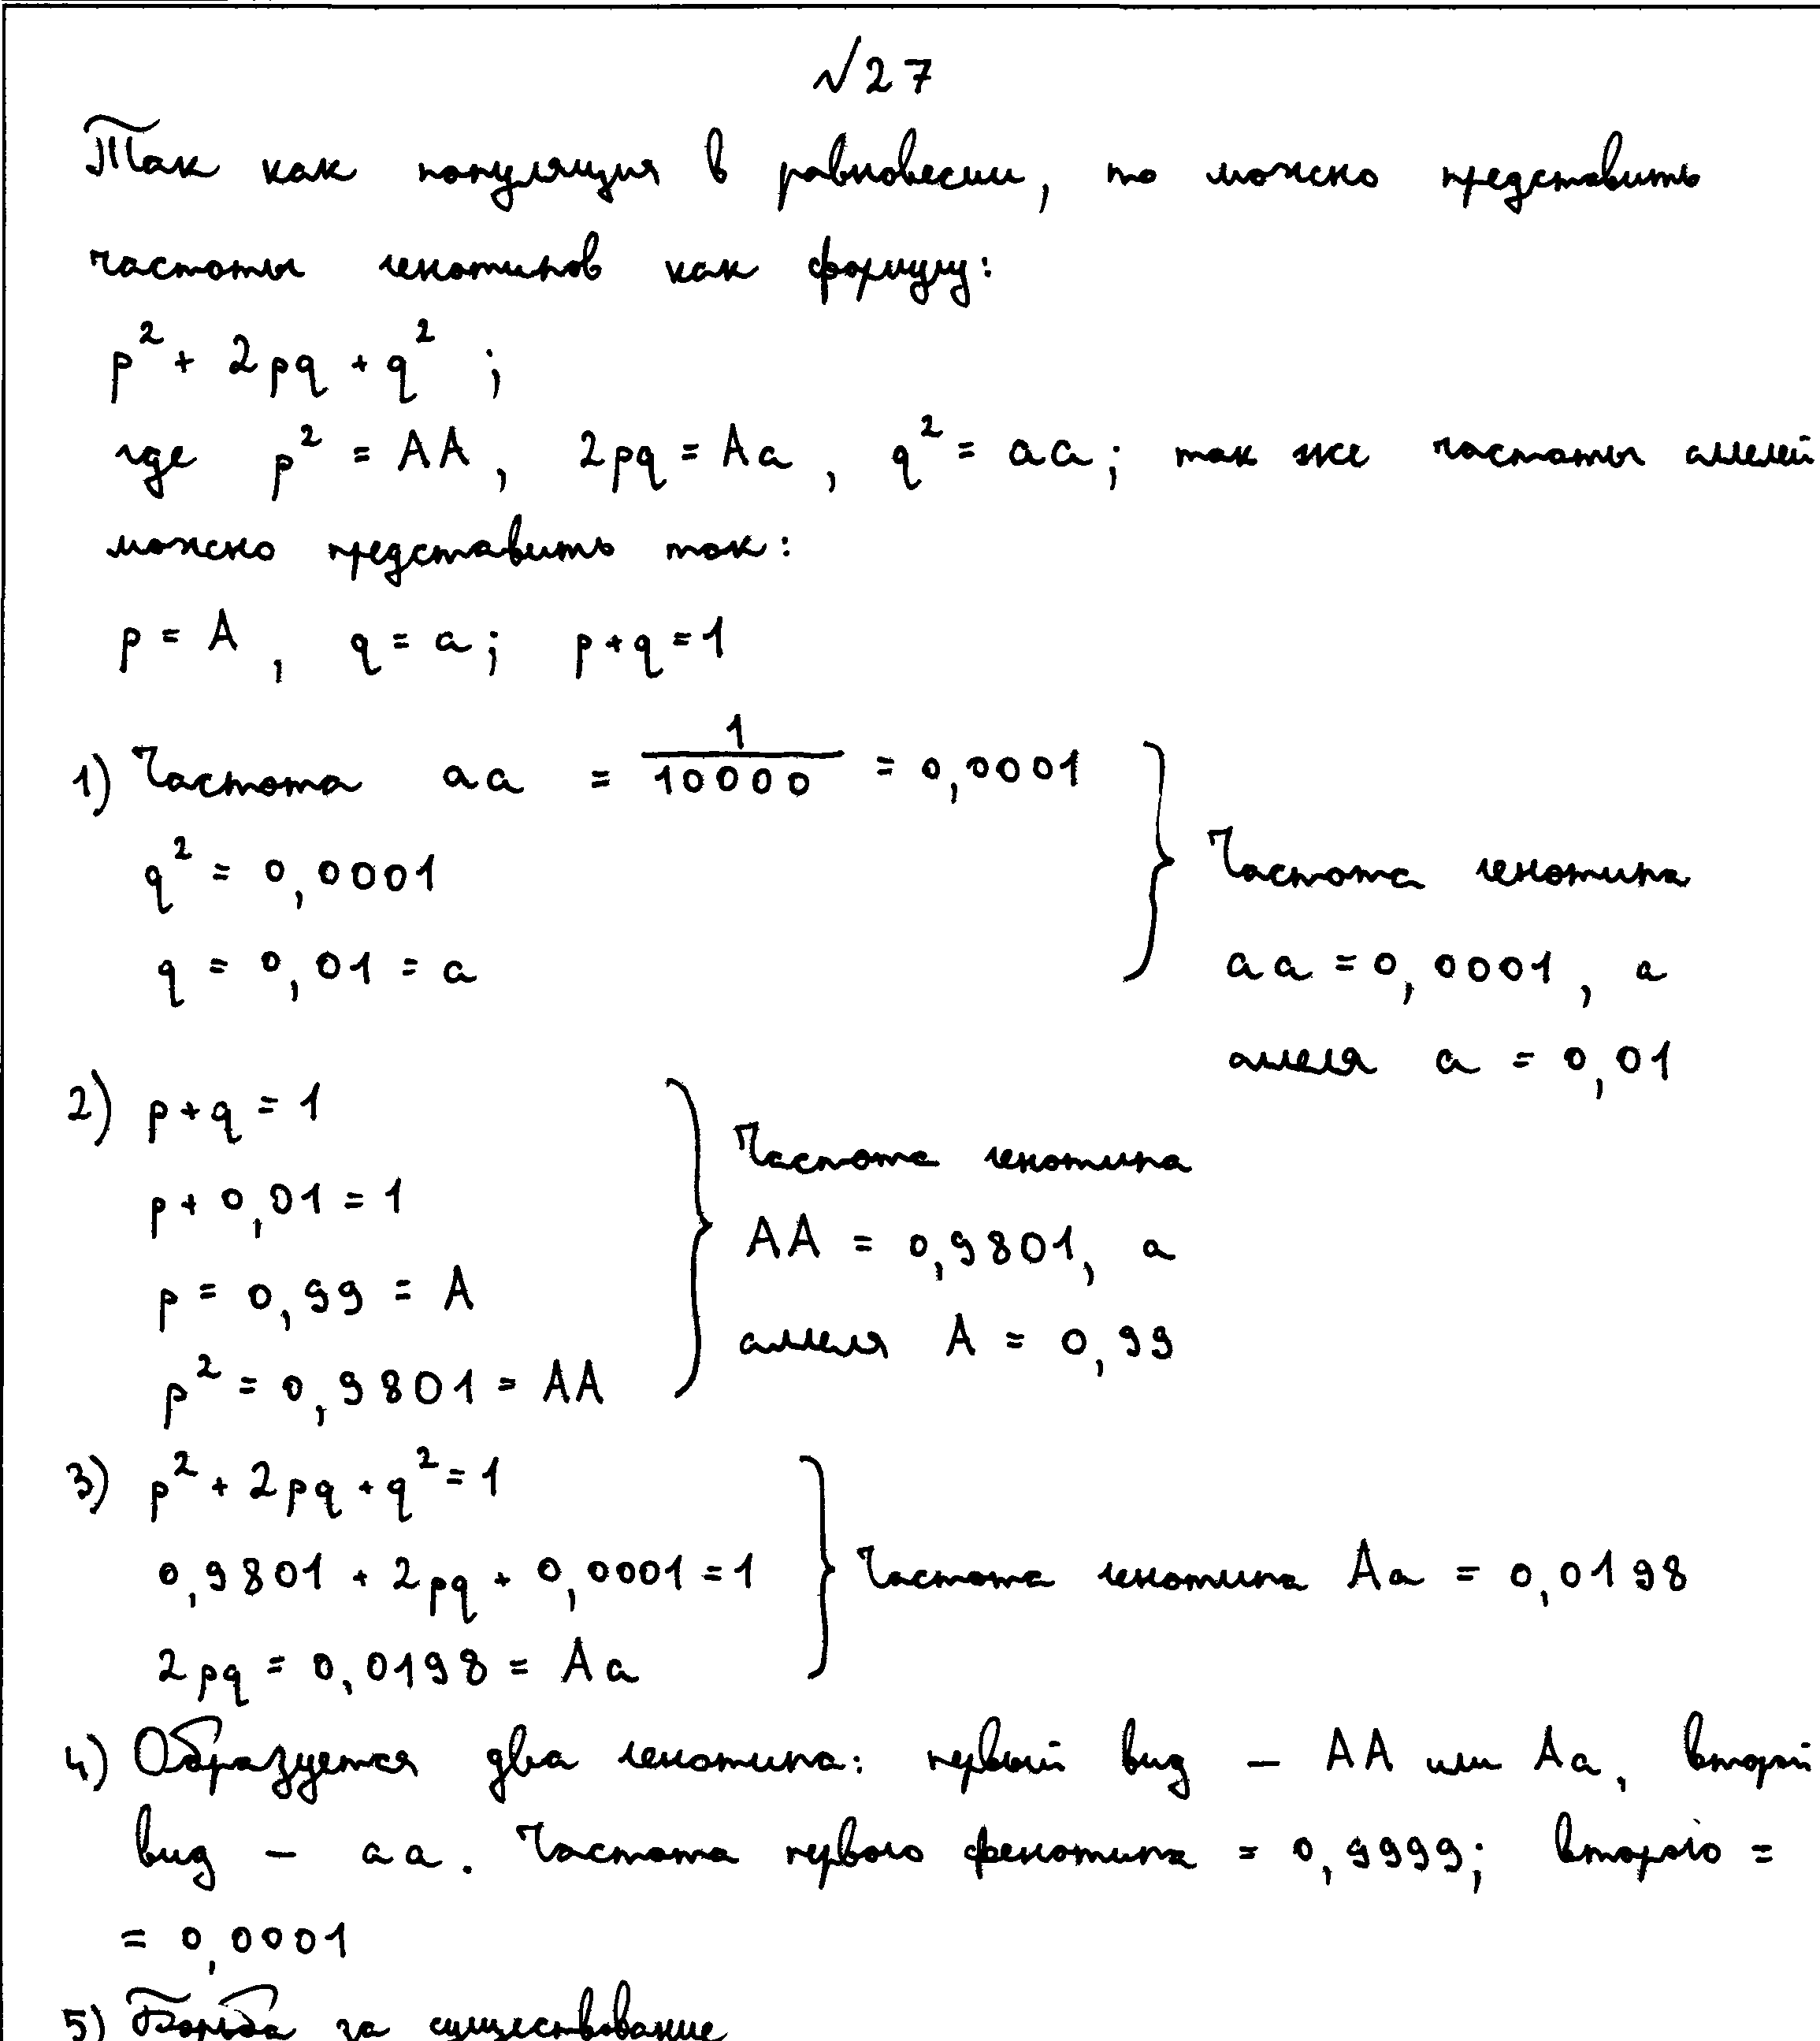 √27
Так как популяция в равновесии, то можно представить
частоты генотипов как формулу:
p² + 2pq + q² ;
где p² = AA, 2pq = Aa, q² = aa; так же частоты аллелей
можно представить так:
p = A, q = a; p+q=1
1) Частота aa = 1/10000 = 0,0001
q² = 0,0001
q = 0,01 = a
Частота генотипа
aa = 0,0001, а
аллеля a = 0,01
2) p+q = 1
p+ 0,01 = 1
p = 0,99 = A
p² = 0,9801 = AA
Частота генотипа
AA = 0,9801, а
аллеля A = 0,99
3) p² + 2pq + q² = 1
0,9801 + 2pq + 0,0001 = 1
2pq = 0,0198 = Aa
Частота генотипа Aa = 0,0198
4) Образуется два генотипа: первый вид – AA или Aa, второй
вид – aa. Частота первого фенотипа = 0,9999; второго =
= 0,0001
5) Борьба за существование